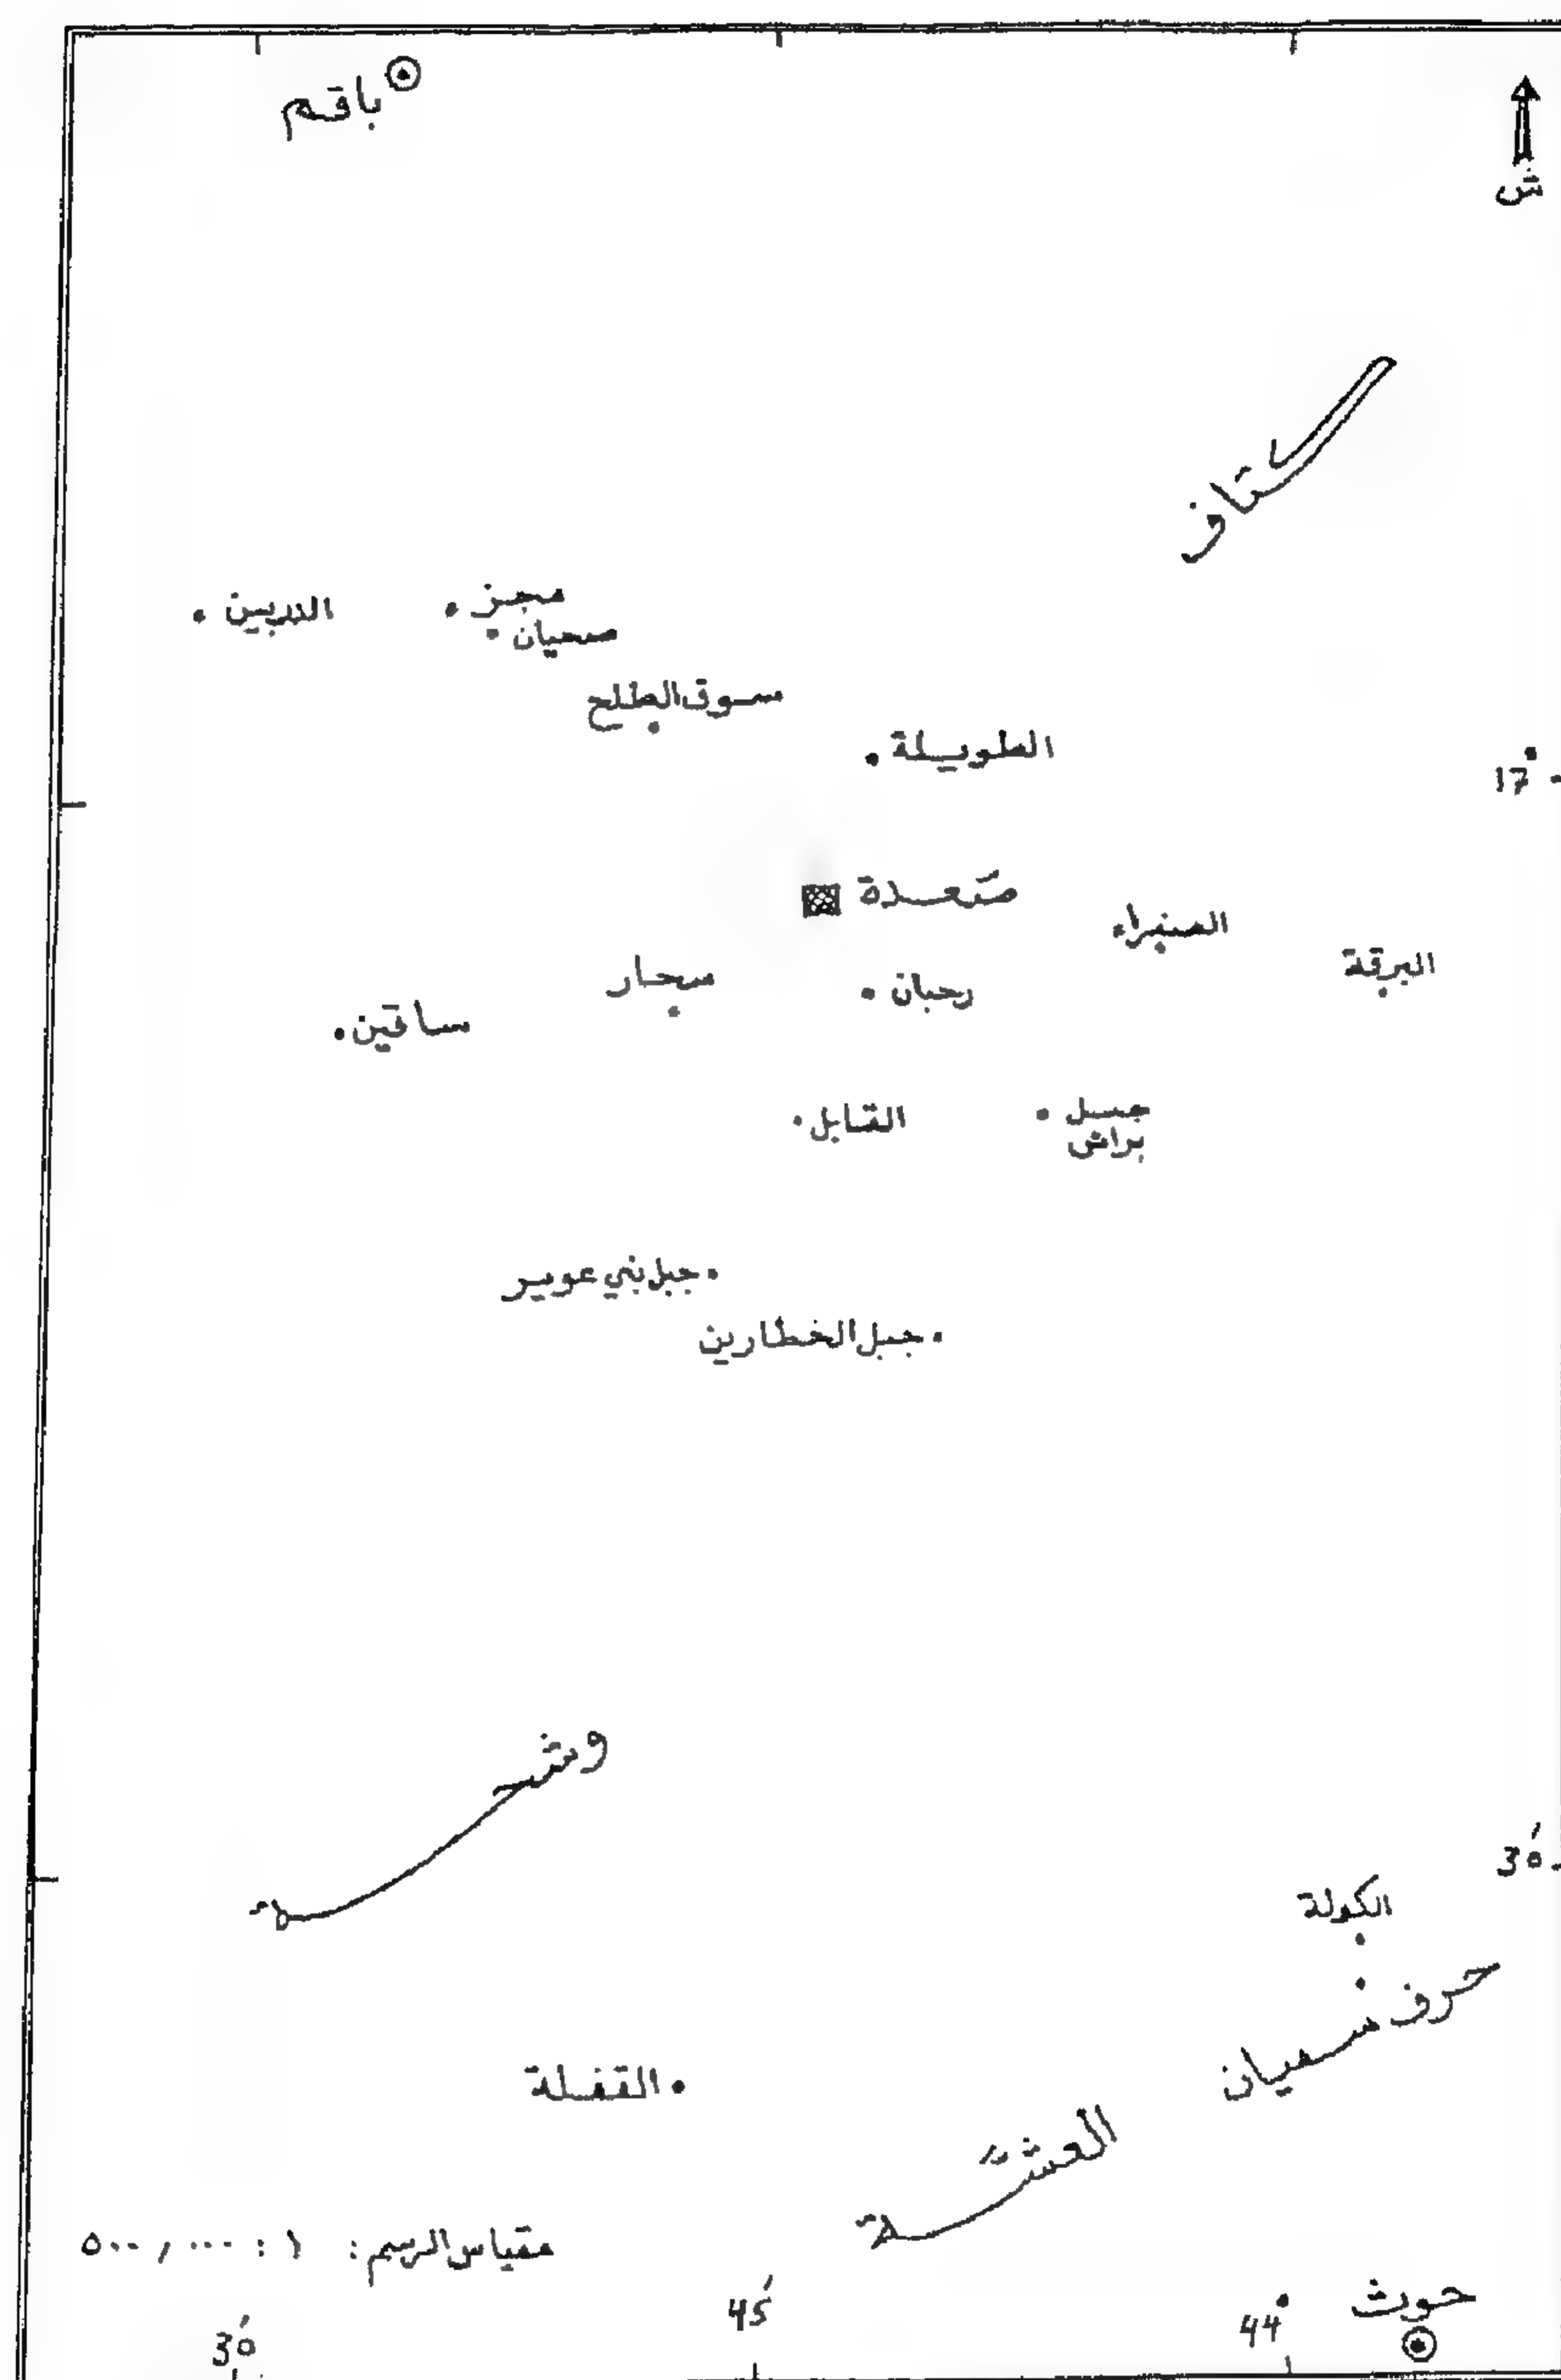 باقم
ش
كتاف
الدربين
مجز
صحيان
سوق الطلح
الطويلة
17°
صعدة
الصفراء
البرقة
سحار
رحبان
ساقين
القابل
جبل
براش
جبل بني عوير
جبل الخطارين
وشحة
30'
الكولة
حرف سفيان
القفلة
العشة
مقياس الرسم: ١ : ٥٠٠,٠٠٠
30'
45'
44°
حوث